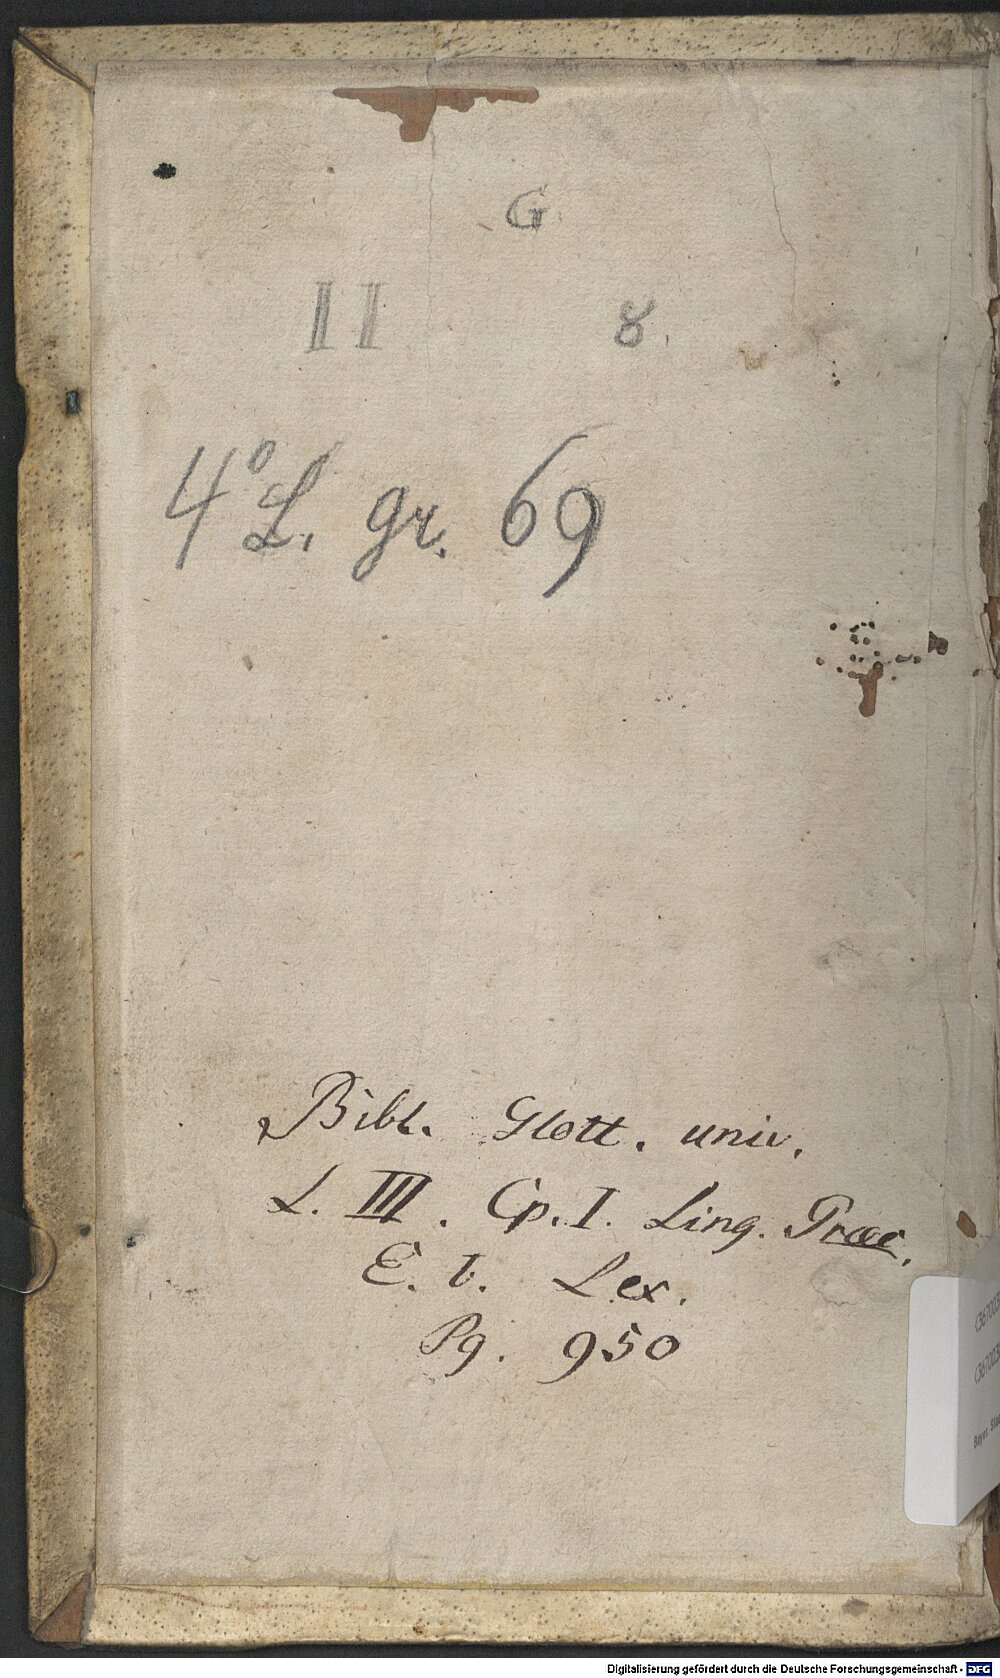 G
II 8.
4° L. gr. 69
Bibl. Glott. univ.
L. III. Cp. I. Ling. Graec.
E. b. Lex.
Pg. 950
Digitalisierung gefördert durch die Deutsche Forschungsgemeinschaft - DFG